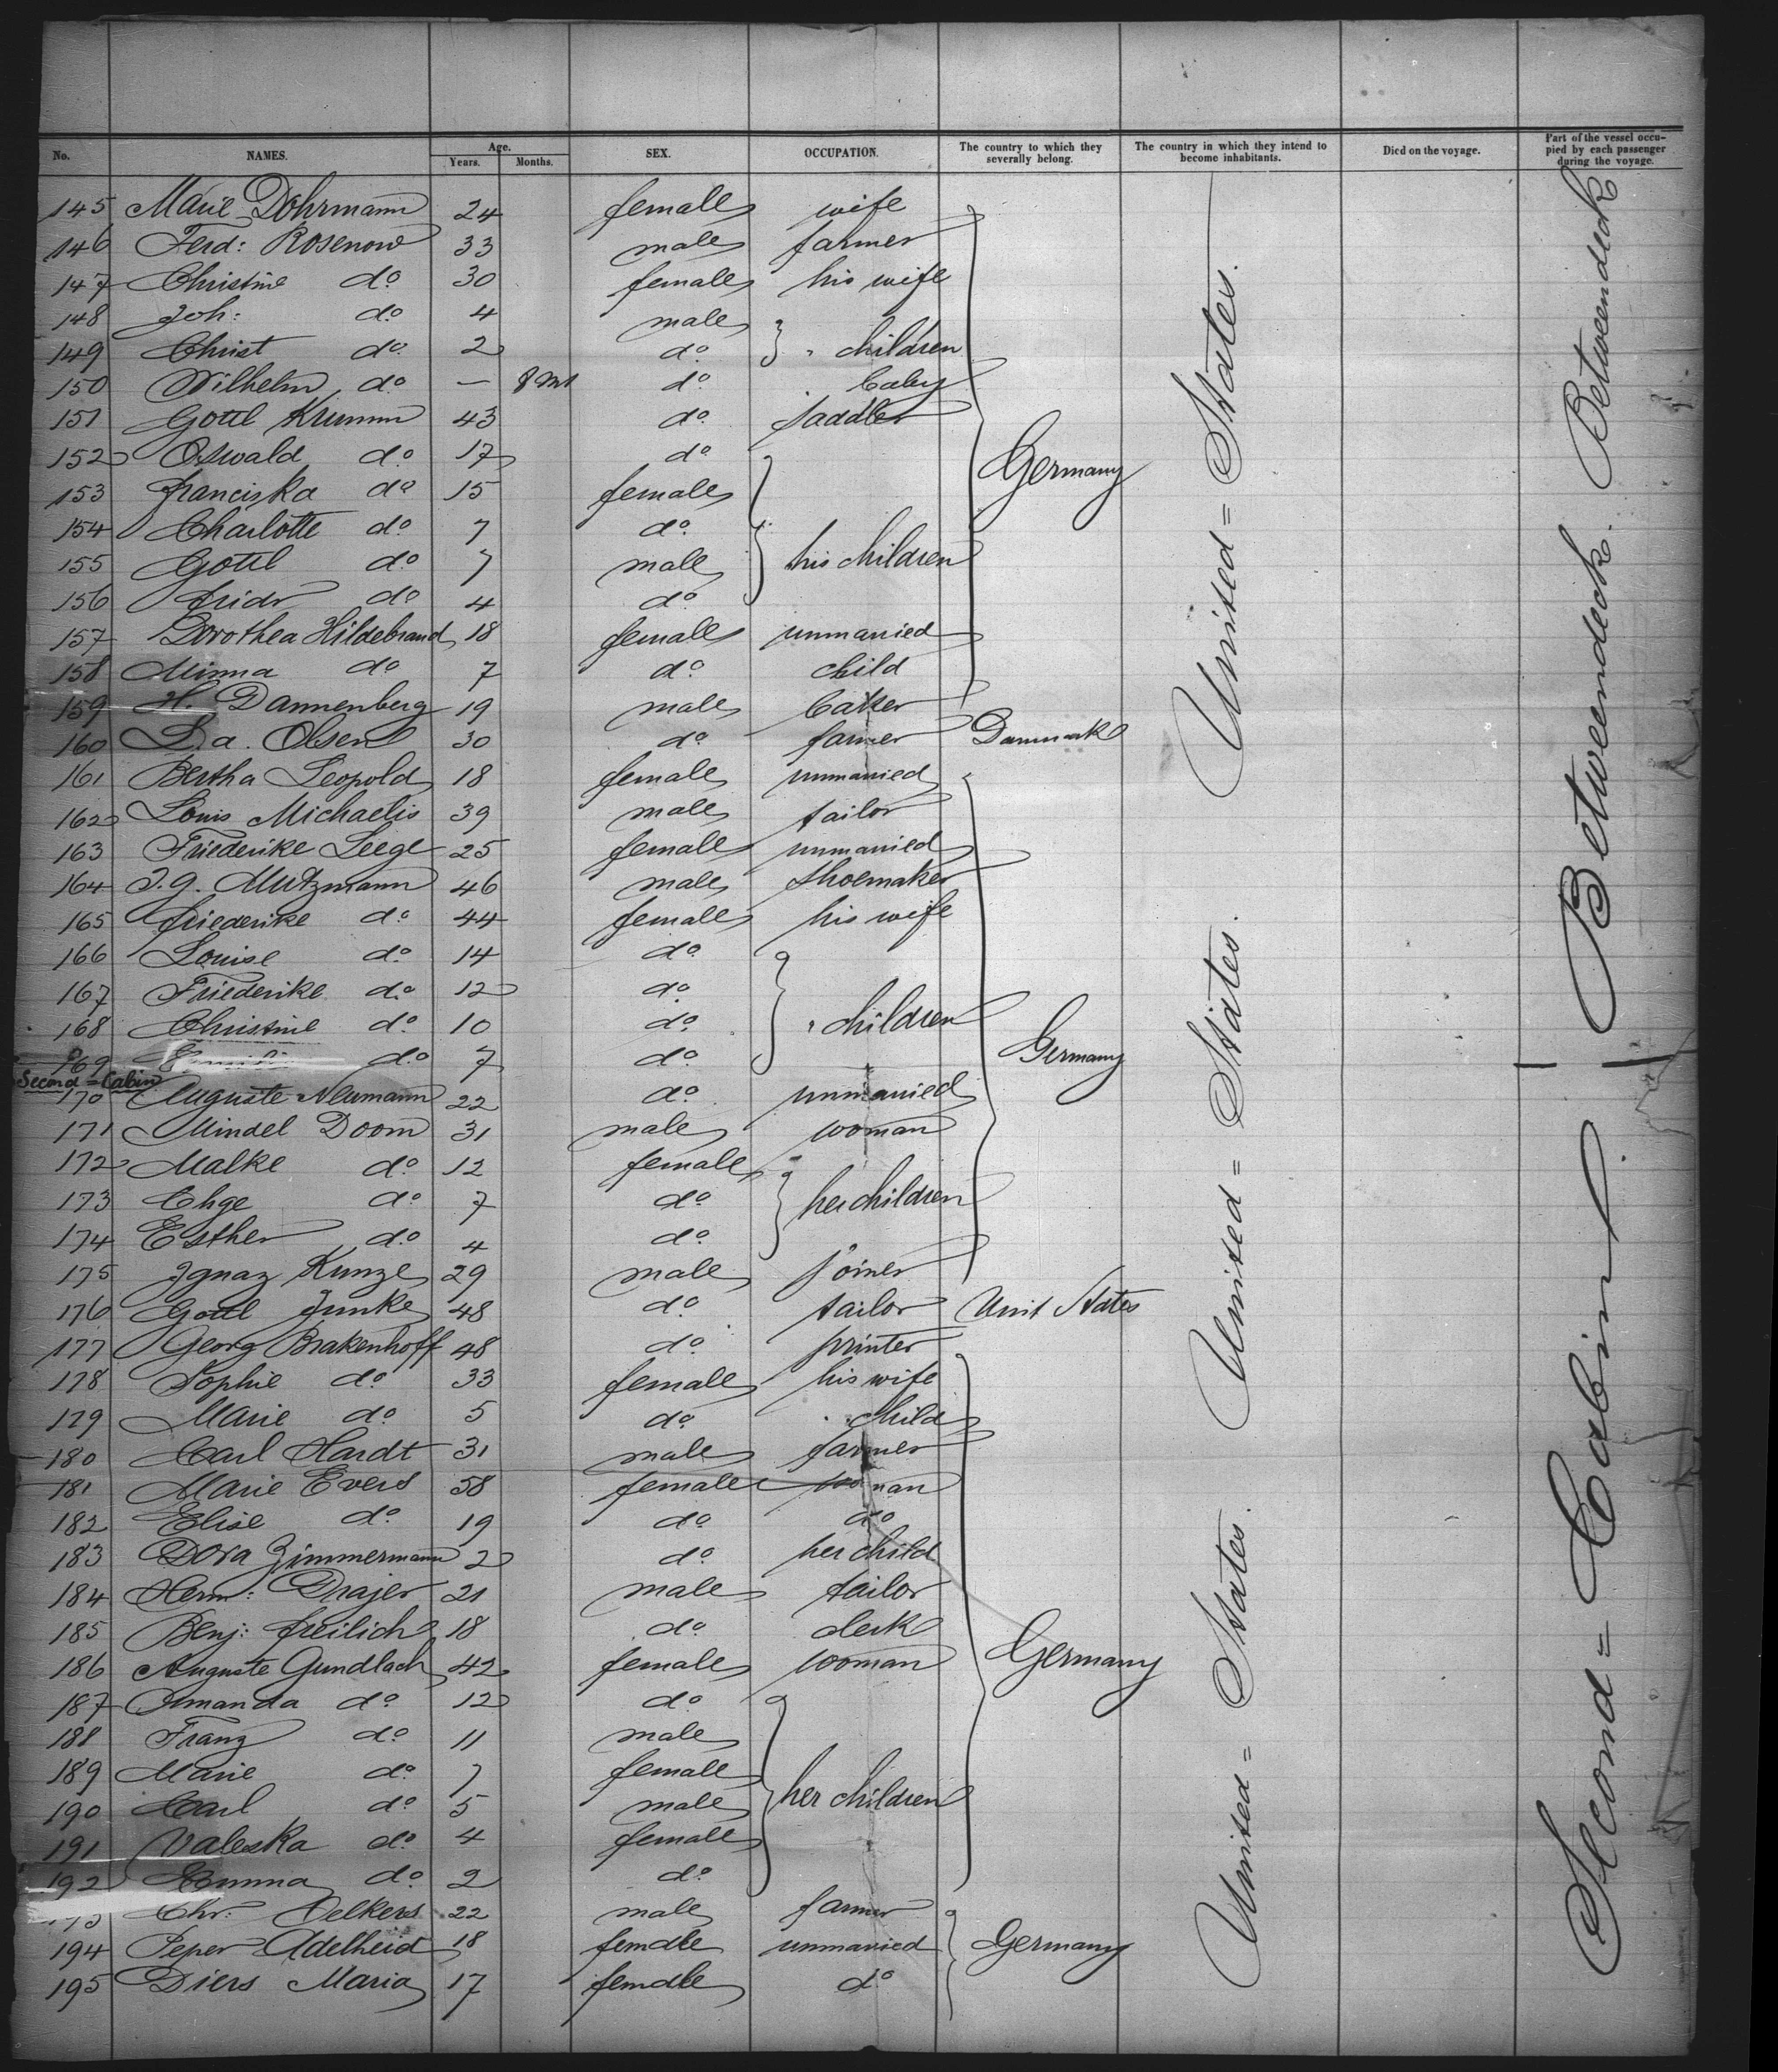 No. NAMES. Age. Years. Months. SEX. OCCUPATION. The country to which they severally belong. The country in which they intend to become inhabitants. Died on the voyage. Part of the vessel occupied by each passenger during the voyage.
145 Marie Dohrmann 24 female wife
146 Ferd: Rosenow 33 male farmer
147 Christine do 30 female his wife
148 Joh: do 4 male
149 Christ do 2 do children
150 Wilhelm do — 8 Mt do baby
151 Gottl Krumm 43 do saddler
152 Oswald do 17 do
153 Franciska do 15 female
154 Charlotte do 7 do
155 Gottl do 7 male his children
156 Fridr do 4 do
157 Dorothea Hildebrand 18 female unmarried
158 Minna do 7 do child
159 H. Dannenberg 19 male baker
Germany
160 L. a. Olsen 30 do farmer Danmark
161 Bertha Leopold 18 female unmarried
162 Louis Michaelis 39 male tailor
163 Friederike Leege 25 female unmarried
164 J. g. Mutzmann 46 male shoemaker
165 Friederike do 44 female his wife
166 Louise do 14 do
167 Friederike do 12 do
168 Christine do 10 do children
169 do 7 do
Second = Cabin
170 Auguste Neumann 22 do unmarried
171 Mindel Doom 31 male woman
172 Malke do 12 female
173 Chge do 7 do her children
174 Esther do 4 do
175 Ignaz Kunze 29 male joiner
Germany
176 Gottl Junke 48 do tailor Unit States
177 Georg Brakenhoff 48 do printer
178 Sophie do 33 female his wife
179 Marie do 5 do child
180 Carl Hardt 31 male farmer
181 Marie Evers 58 female woman
182 Elise do 19 do do
183 Dora Zimmermann 2 do her child
184 Herm: Drajer 21 male tailor
185 Benj: Freilich 18 do clerk
186 Auguste Gundlach 42 female woman
187 Amanda do 12 do
188 Franz do 11 male
189 Marie do 7 female
190 Carl do 5 male her children
191 Valeska do 4 female
192 Emma do 2 do
Germany
193 Chr: Oelkers 22 male farmer
194 Peper Adelheid 18 female unmarried Germany
195 Diers Maria 17 female do
United = States.
United = States.
United = States.
Betweendeck
Betweendeck.
Second = Cabin